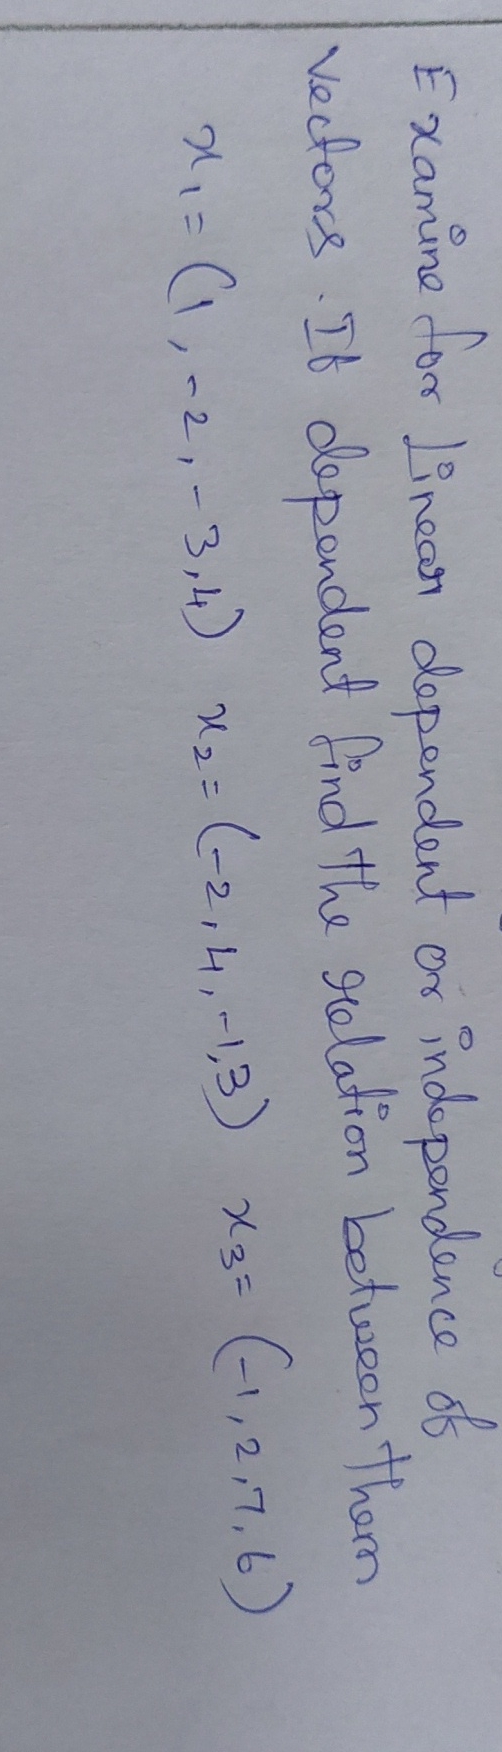 Examine for Linear dependent or independence of
vectors. If dependent find the relation between them
x₁ = (1, -2, -3, 4) x₂ = (-2, 4, -1, 3) x₃ = (-1, 2, 7, 6)